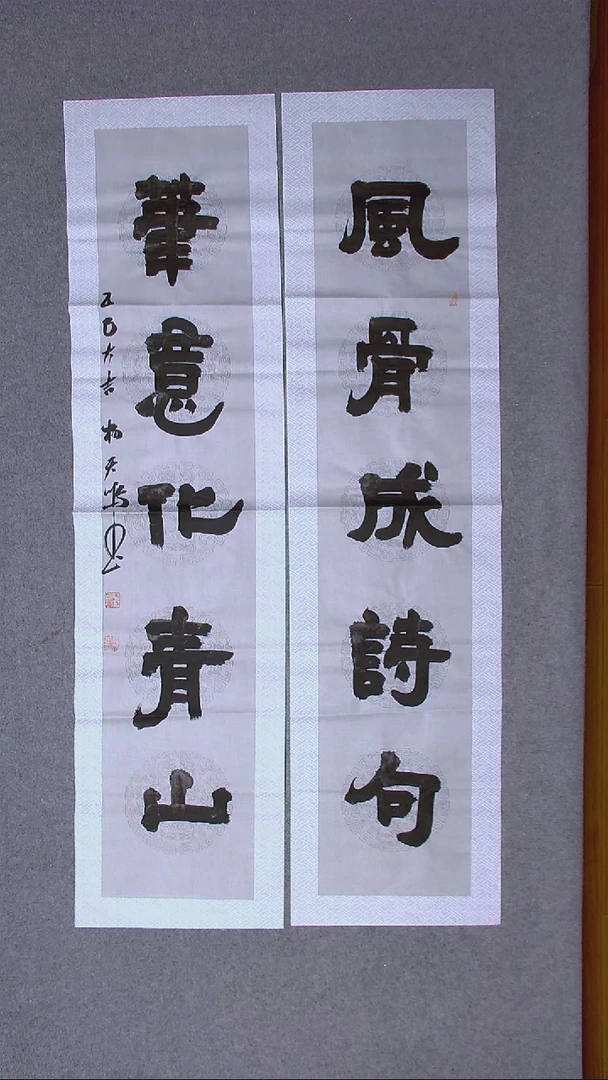 風骨成詩句
筆意化青山
乙巳大吉 楊天